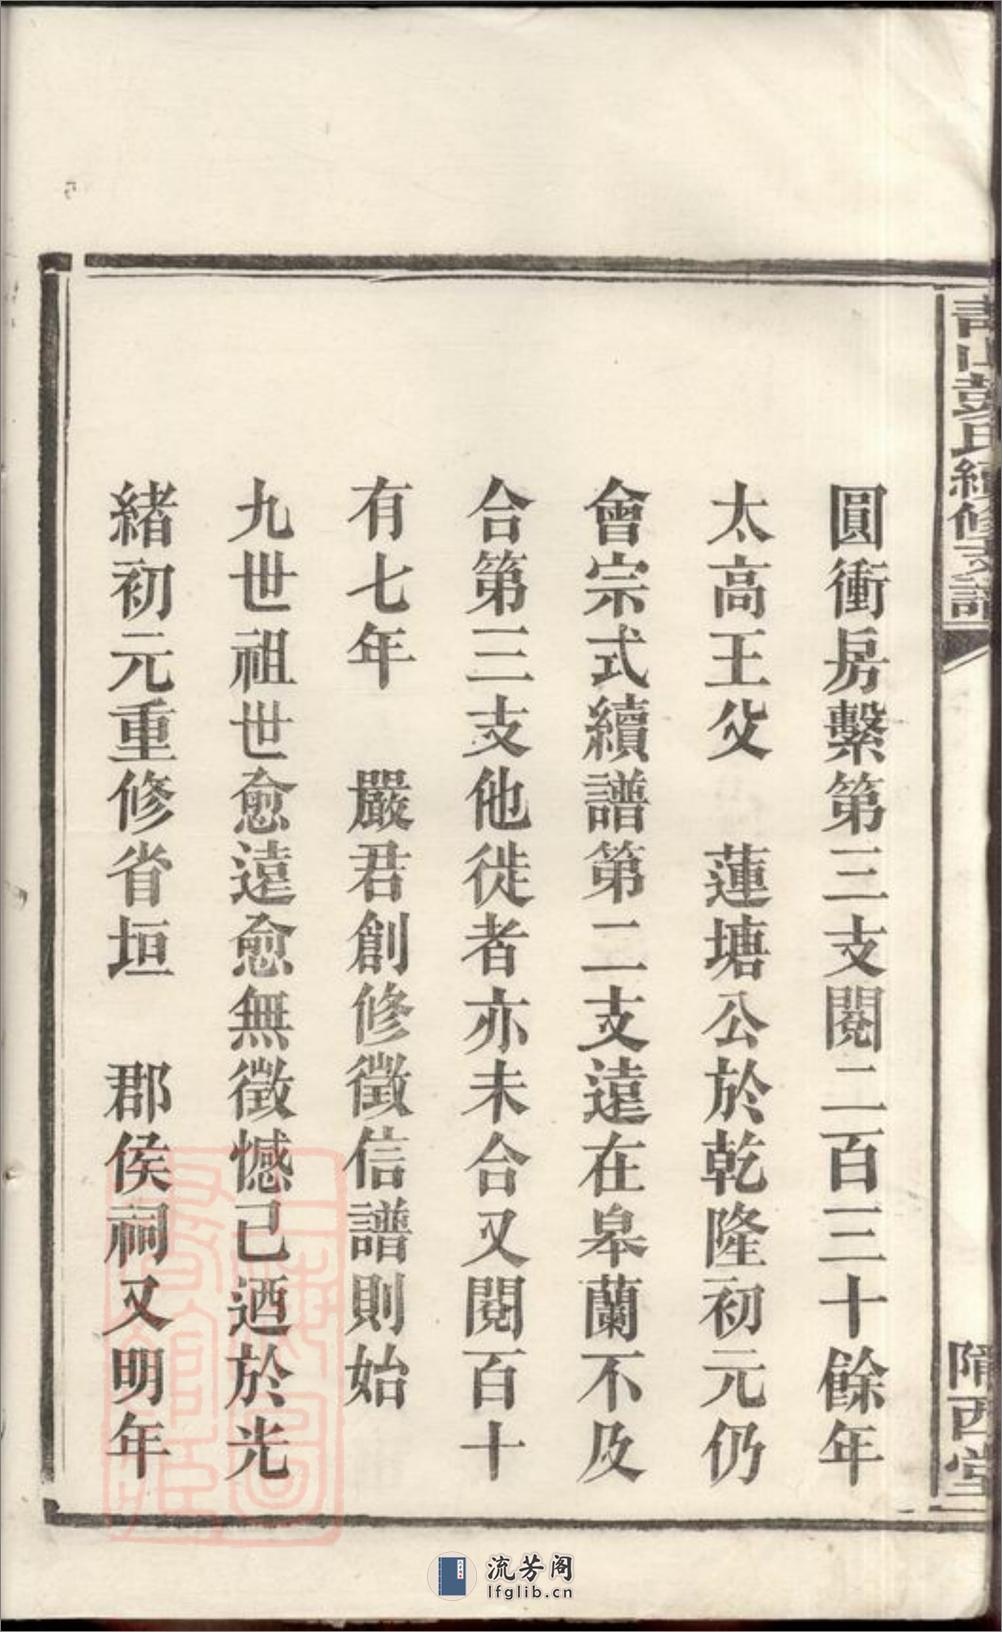 青山彭氏續修支譜
隴西堂
圓衝房繫第三支閱二百三十餘年
太高王父　蓮塘公於乾隆初元仍
會宗式續譜第二支遠在皋蘭不及
合第三支他徙者亦未合又閱百十
有七年　嚴君創修徵信譜則始
九世祖世愈遠愈無徵憾已迺於光
緒初元重修省垣　郡侯祠又明年
流芳阁
lfglib.cn